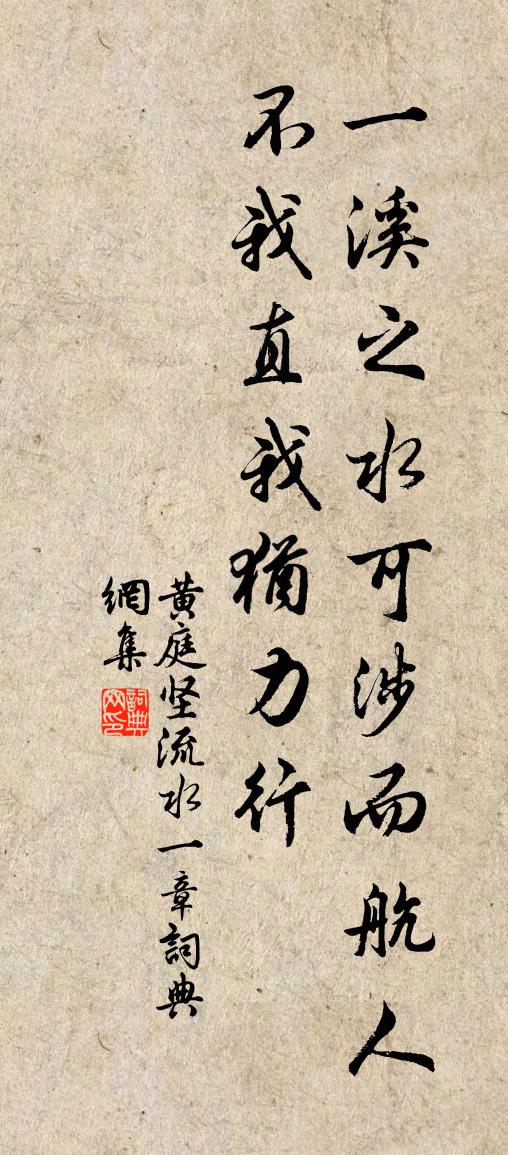 一溪之水可涉而航人
不我直我犹力行
黄庭坚流水一章詞典
網集
詞典
网印